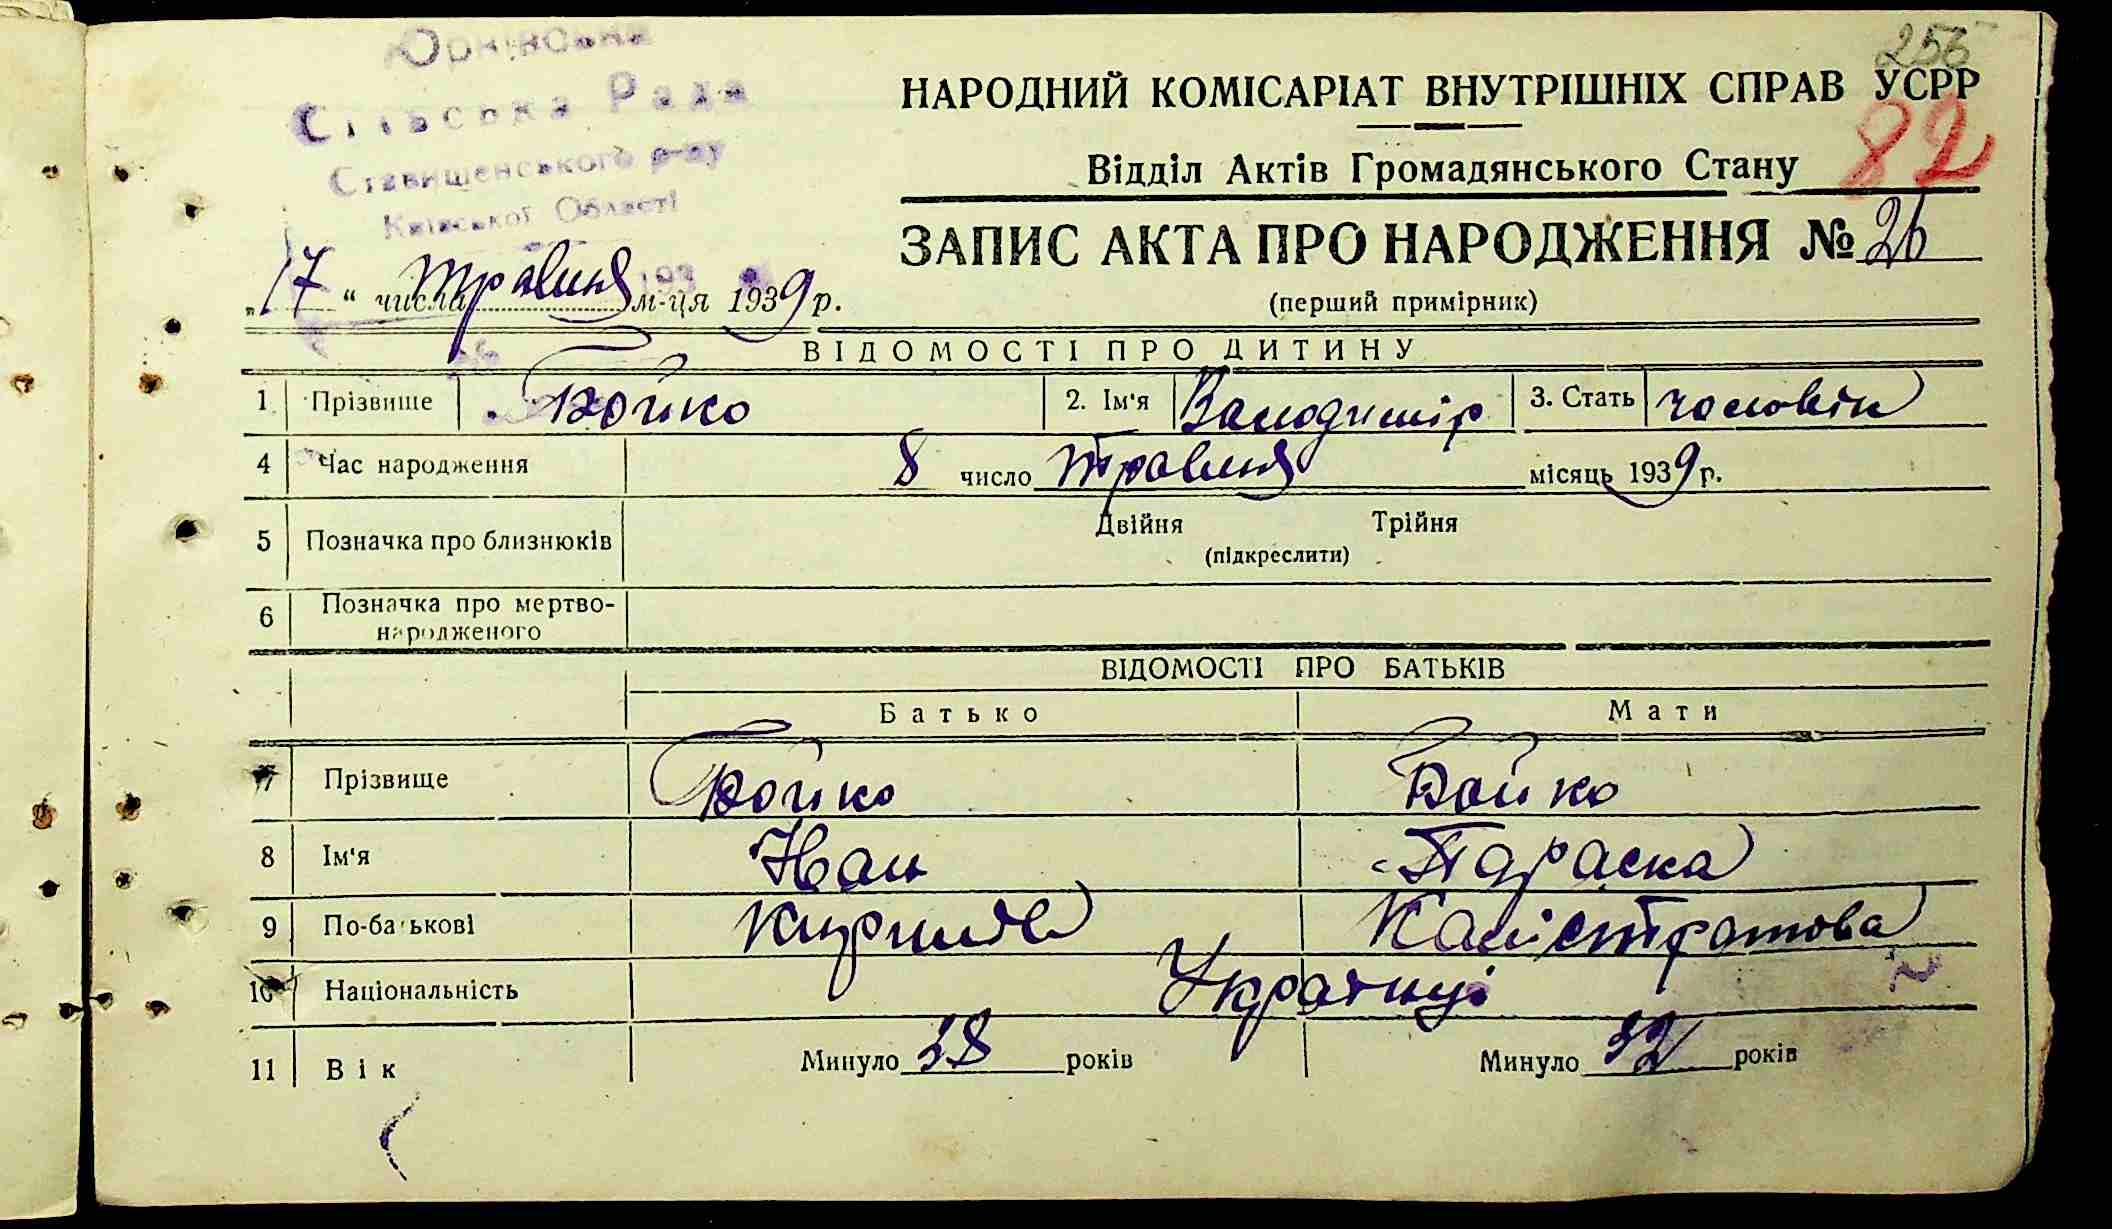 256
Юрківська
Сільська Рада
Ставищенського р-ну
Київської Області
НАРОДНИЙ КОМІСАРІАТ ВНУТРІШНІХ СПРАВ УСРР
82
Відділ Актів Громадянського Стану
ЗАПИС АКТА ПРО НАРОДЖЕННЯ № 26
„17“ числа травня м-ця 1939 р.
(перший примірник)
ВІДОМОСТІ ПРО ДИТИНУ
1 Прізвище Бойко 2. Ім'я Володимір 3. Стать чоловік
4 Час народження 8 число травня місяць 1939 р.
5 Позначка про близнюків Двійня Трійня
(підкреслити)
6 Позначка про мертво-
народженого
ВІДОМОСТІ ПРО БАТЬКІВ
Батько Мати
7 Прізвище Бойко Бойко
8 Ім'я Іван Параска
9 По-батькові Кирилів Калістратова
10 Національність Українці
11 Вік Минуло 38 років Минуло 32 років